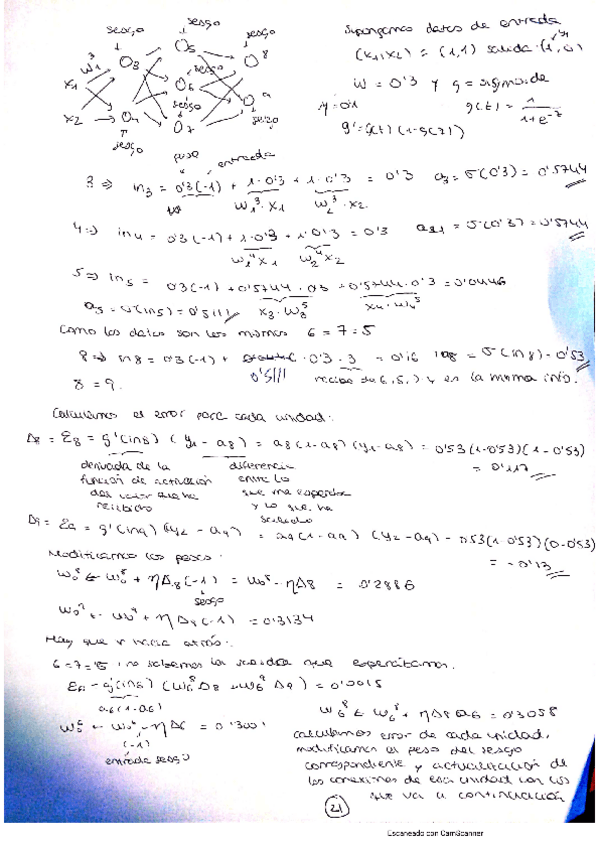 sesgo sesgo sesgo
Supongamos datos de entrada
(x1, x2) = (1,1) salida (1, 0)
w = 0'3 y g = sigmoide
η = 0'1 g(z) = 1/(1+e^-z)
g' = g(z)(1-g(z))
x1 w1³ 3 5 8
sesgo
x2 4 6 9
sesgo
7
sesgo sesgo
peso entrada
3 ⇒ in3 = 0'3(-1) + 1·0'3 + 1·0'3 = 0'3 a3 = σ(0'3) = 0'5744
w1³·x1 w2³·x2
4 ⇒ in4 = 0'3(-1) + 1·0'3 + 1·0'3 = 0'3 a4 = σ(0'3) = 0'5744
w1⁴x1 w2⁴x2
5 ⇒ in5 = 0'3(-1) + 0'5744·0'3 + 0'5744·0'3 = 0'0446
a5 = σ(in5) = 0'5111 x3·w3⁵ x4·w4⁵
Como los datos son los mismos 6 = 7 = 5
8 ⇒ in8 = 0'3(-1) + 0'5111·0'3·3 = 0'16 a8 = σ(in8) = 0'53
8 = 9. y es la misma info.
Calculamos el error para cada unidad:
Δ8 = E8 = g'(in8)(y1 - a8) = a8(1-a8)(y1-a8) = 0'53(1-0'53)(1-0'53)
= 0'117
derivada de la diferencia
función de activación entre lo
del valor que ha que me esperaba
recibido y lo que ha
salido
Δ9 = E9 = g'(in9)(y2 - a9) = a9(1-a9)(y2-a9) = 0'53(1-0'53)(0-0'53)
= -0'13
Modificamos los pesos:
w0⁸ ← w0⁸ + ηΔ8(-1) = w0⁸ - ηΔ8 = 0'2886
sesgo
w0⁹ ← w0⁹ + ηΔ9(-1) = 0'3134
Hay que ir hacia atrás:
6 = 7 = 5 no sabemos la salida que esperábamos.
E6 = g'(in6)(w6⁸Δ8 + w6⁹Δ9) = 0'0015
a6(1-a6)
w0⁶ ← w0⁶ - ηΔ6 = 0'3001
(-1)
entrada sesgo
w6⁸ ← w6⁸ + ηΔ8a6 = 0'3058
calculamos error de cada unidad,
modificamos el peso del sesgo
correspondiente y actualización de
las conexiones de esa unidad con las
que va a continuación
21
Escaneado con CamScanner